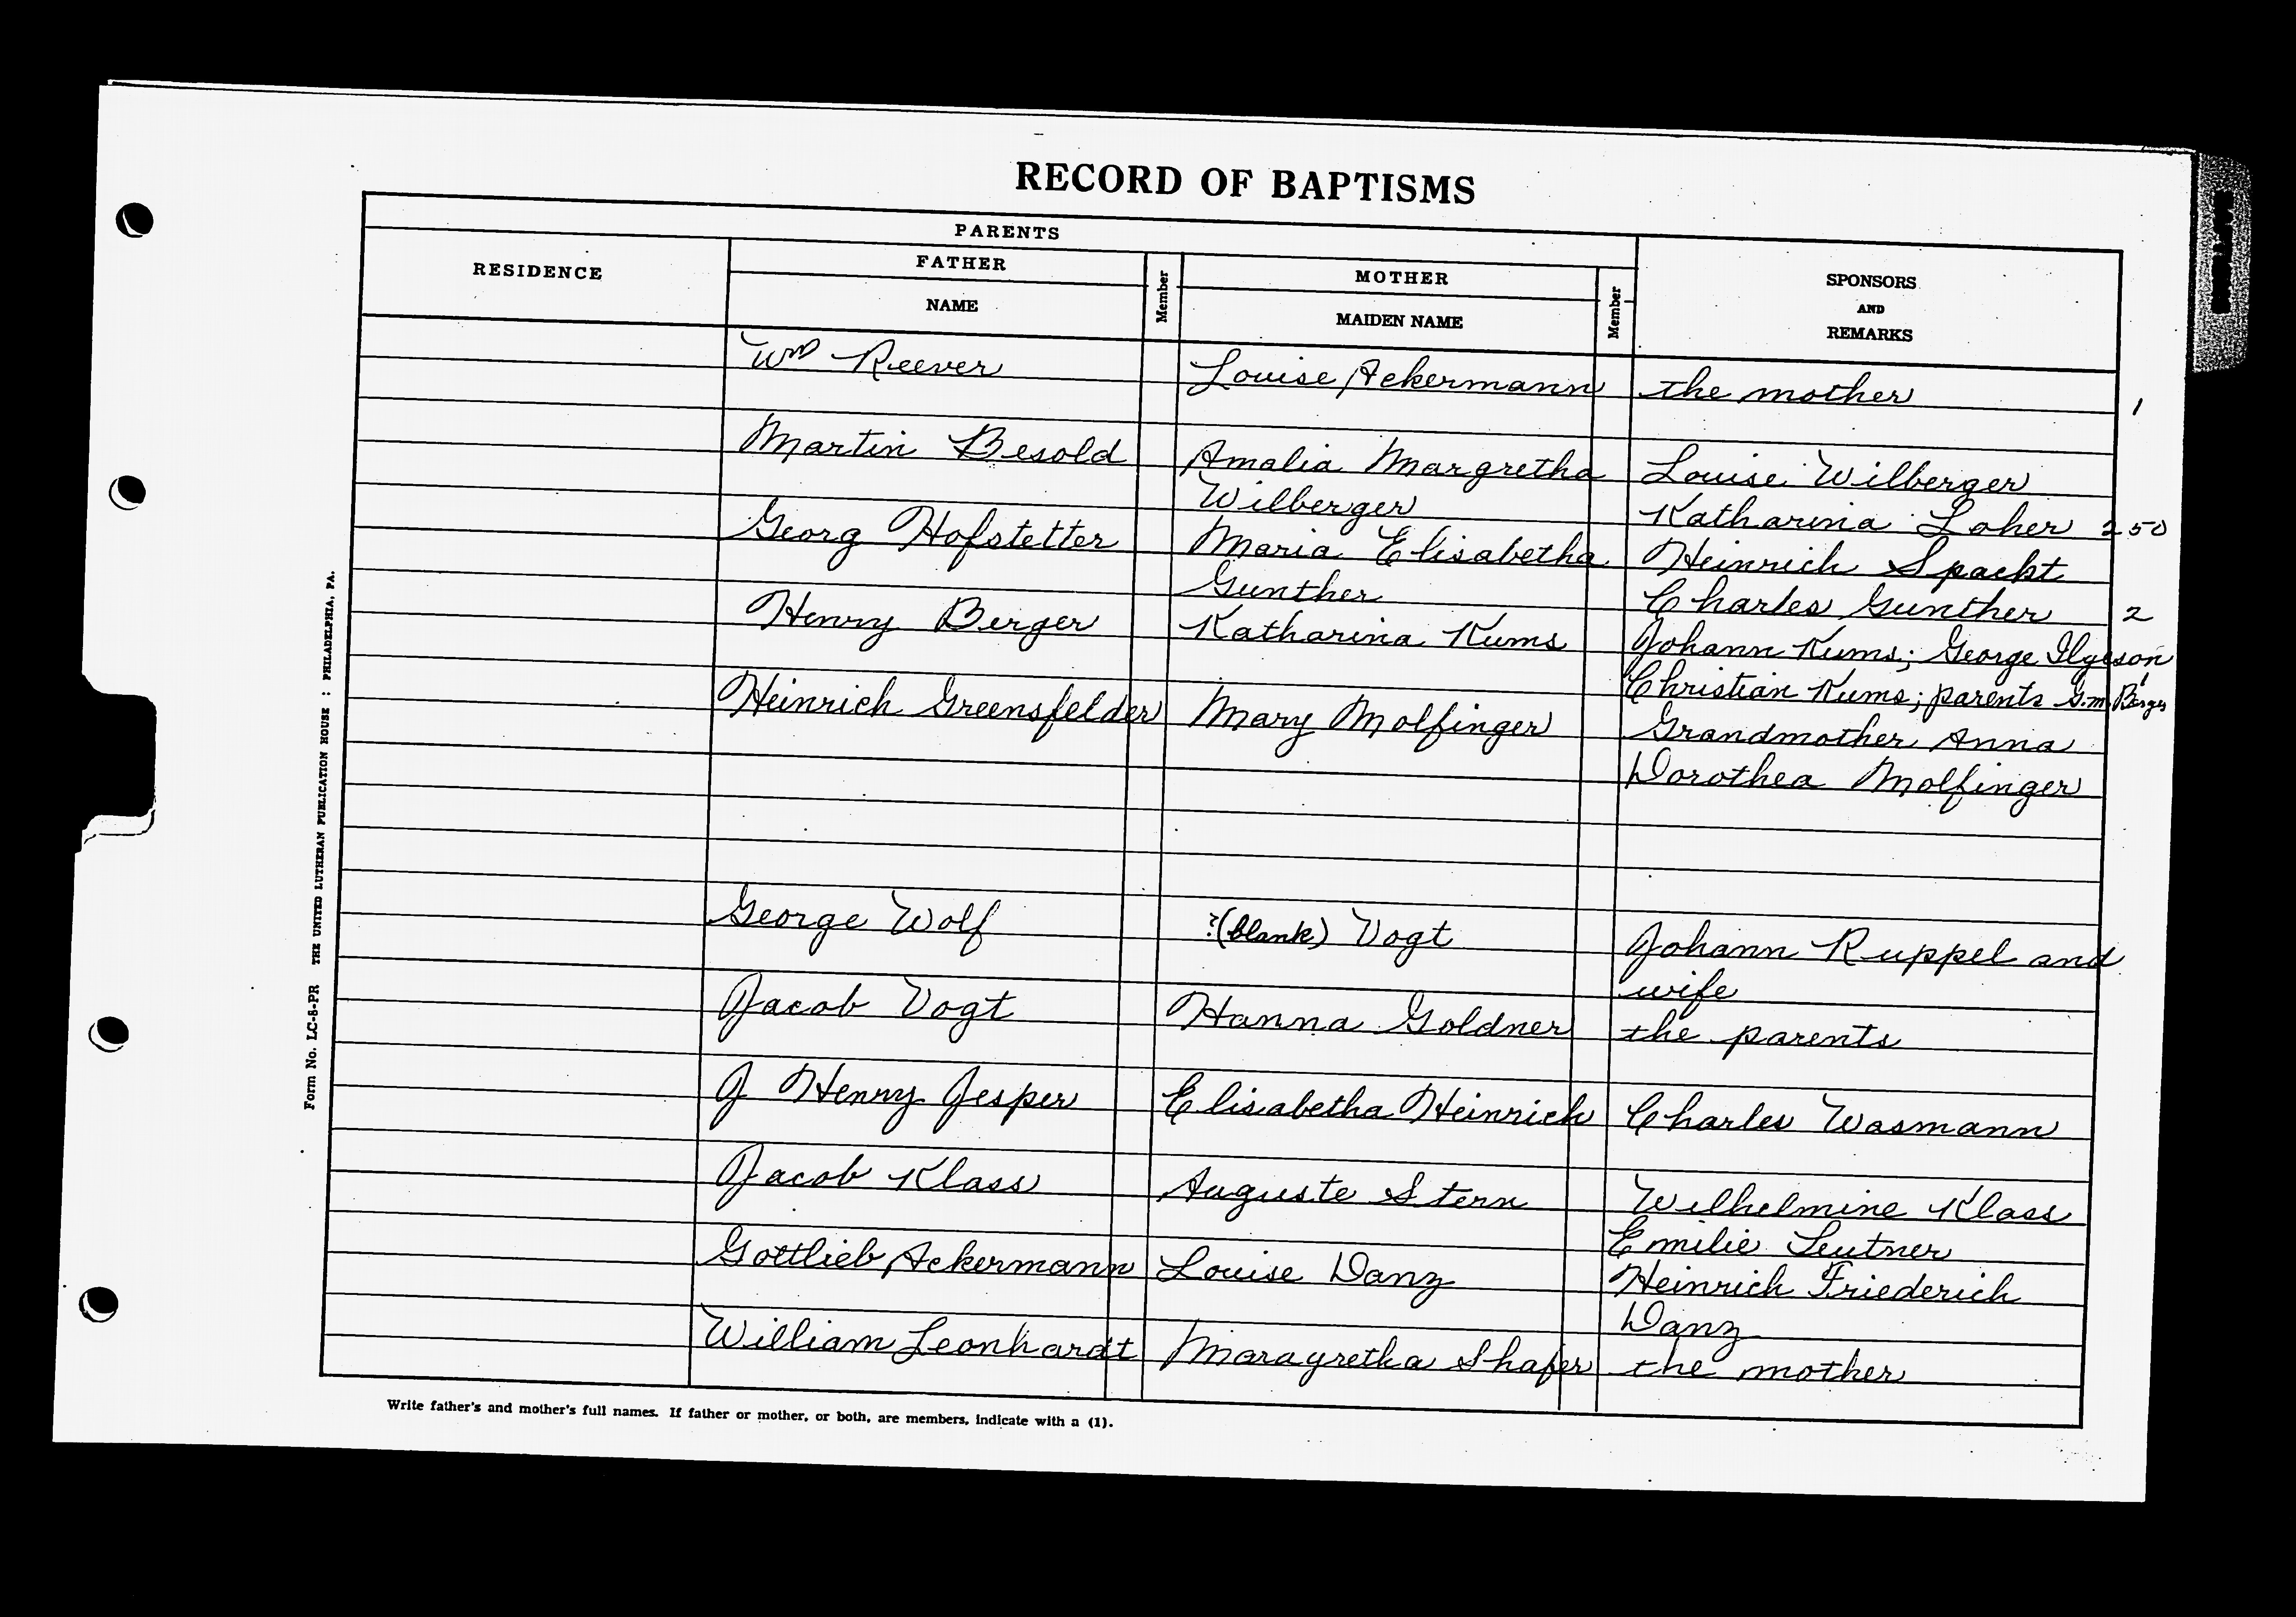 RECORD OF BAPTISMS
PARENTS
RESIDENCE
FATHER
NAME
Member
MOTHER
MAIDEN NAME
Member
SPONSORS
AND
REMARKS
Wm Reever Louise Ackermann the mother 1
Martin Besold Amalia Margretha Louise Wilberger
Wilberger Katharina Loher 250
Georg Hofstetter Maria Elisabetha Heinrich Spackt
Gunther Charles Gunther 2
Henry Berger Katharina Kums Johann Kums; George Ilgeson
Christian Kums; parents G.m. Berger 1
Heinrich Greensfelder Mary Molfinger Grandmother Anna
Dorothea Molfinger
George Wolf ?(blank) Vogt Johann Ruppel and
wife
Jacob Vogt Hanna Goldner the parents
J Henry Jesper Elisabetha Heinrich Charles Wasmann
Jacob Klass Auguste Stern Wilhelmine Klass
Emilie Leutner
Gottlieb Ackermann Louise Danz Heinrich Friederich
Danz
William Leonhardt Maragretha Shafer the mother
Write father's and mother's full names. If father or mother, or both, are members, indicate with a (1).
Form No. LC-8-PR THE UNITED LUTHERAN PUBLICATION HOUSE : PHILADELPHIA, PA.